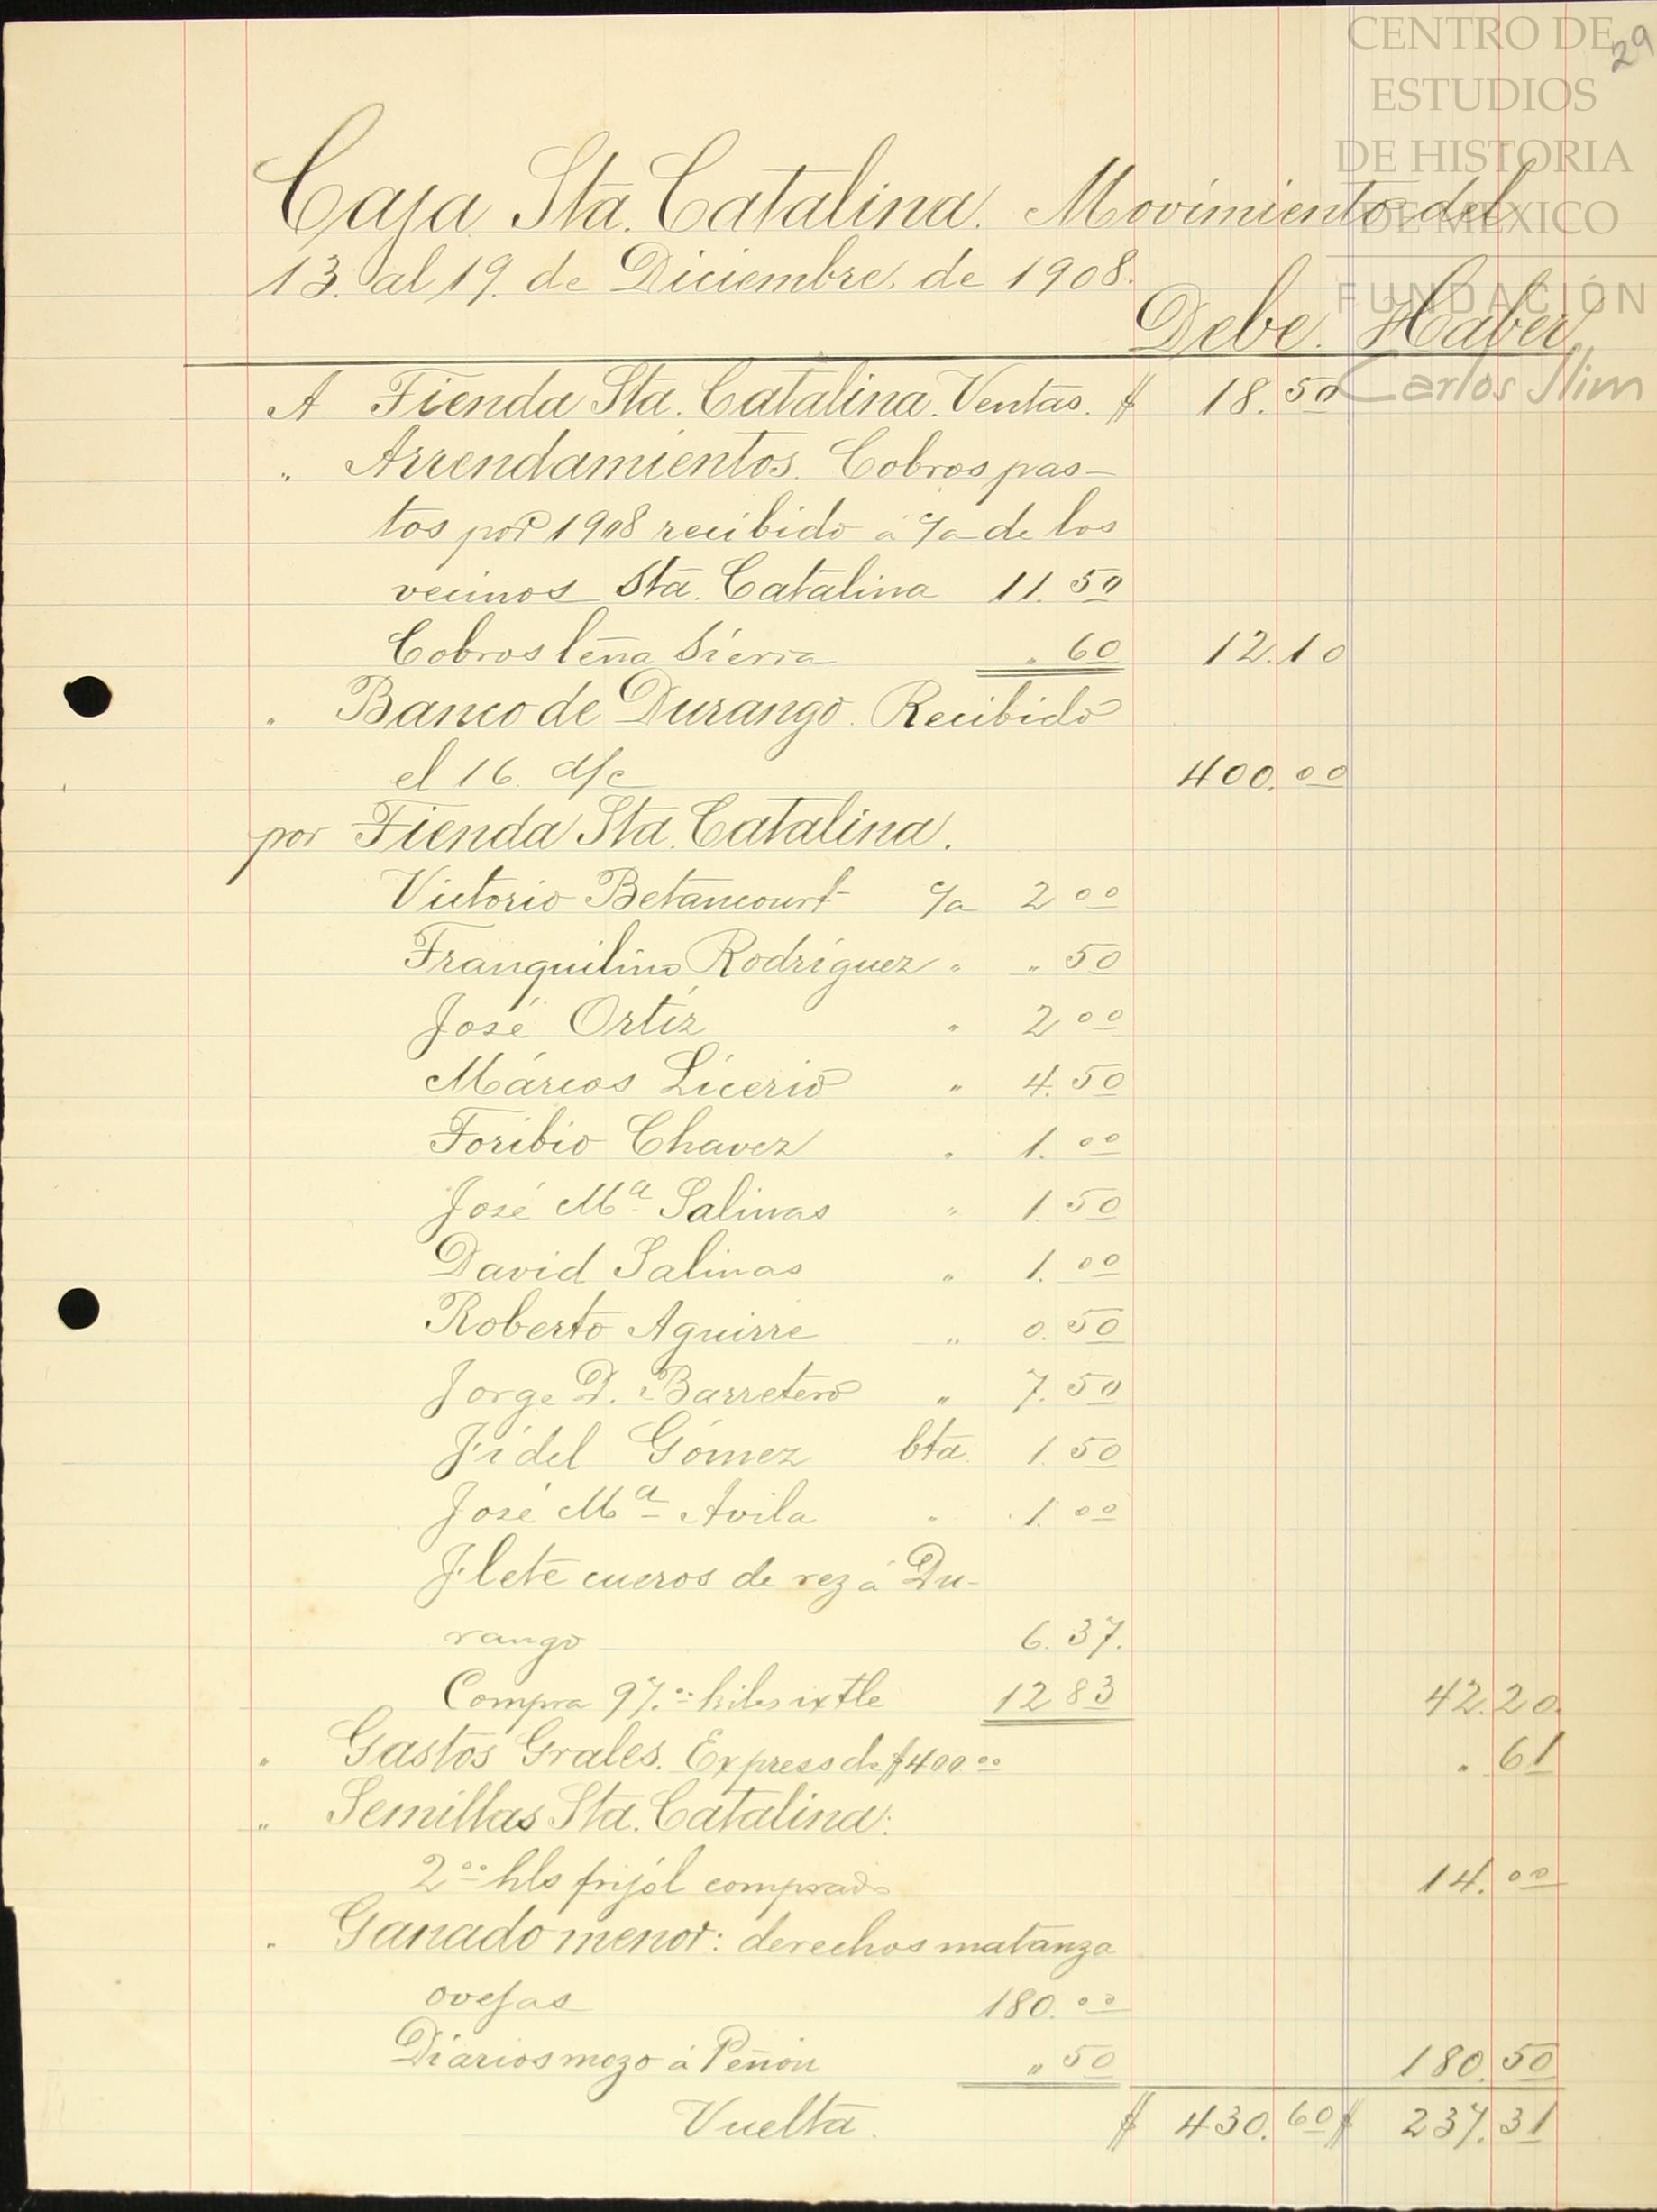 CENTRO DE
ESTUDIOS
DE HISTORIA
DE MÉXICO
FUNDACIÓN
Carlos Slim
29
Caja Sta. Catalina. Movimiento del
13. al 19. de Diciembre. de 1908.
Debe. Haber.
A Tienda Sta. Catalina. Ventas. $ 18.50
" Arrendamientos. Cobros pas-
tos por 1908 recibido á c/a de los
vecinos Sta. Catalina 11.50
Cobros leña Sierra " 60 12.10
" Banco de Durango. Recibido
el 16. d/c 400.00
por Tienda Sta. Catalina.
Victorio Betancourt c/a 2 00
Tranquilino Rodríguez " " 50
José Ortíz " 2 00
Márcos Licerio " 4.50
Toribio Chavez " 1.00
José Ma Salinas " 1.50
David Salinas " 1.00
Roberto Aguirre " 0.50
Jorge D. Barretero " 7.50
Fidel Gómez bta. 1.50
José Ma Avila " 1.00
Flete cueros de rez á Du-
rango 6.37.
Compra 97.00 kilos ixtle 12 83 42.20.
" Gastos Grales. Express de $400.00 " 61
" Semillas Sta. Catalina:
2 00 hls frijól comprado 14.00
" Ganado menor: derechos matanza
ovejas 180.00
Diarios mozo á Peñon " 50 180.50
Vuelta. $ 430.60 $ 237.31